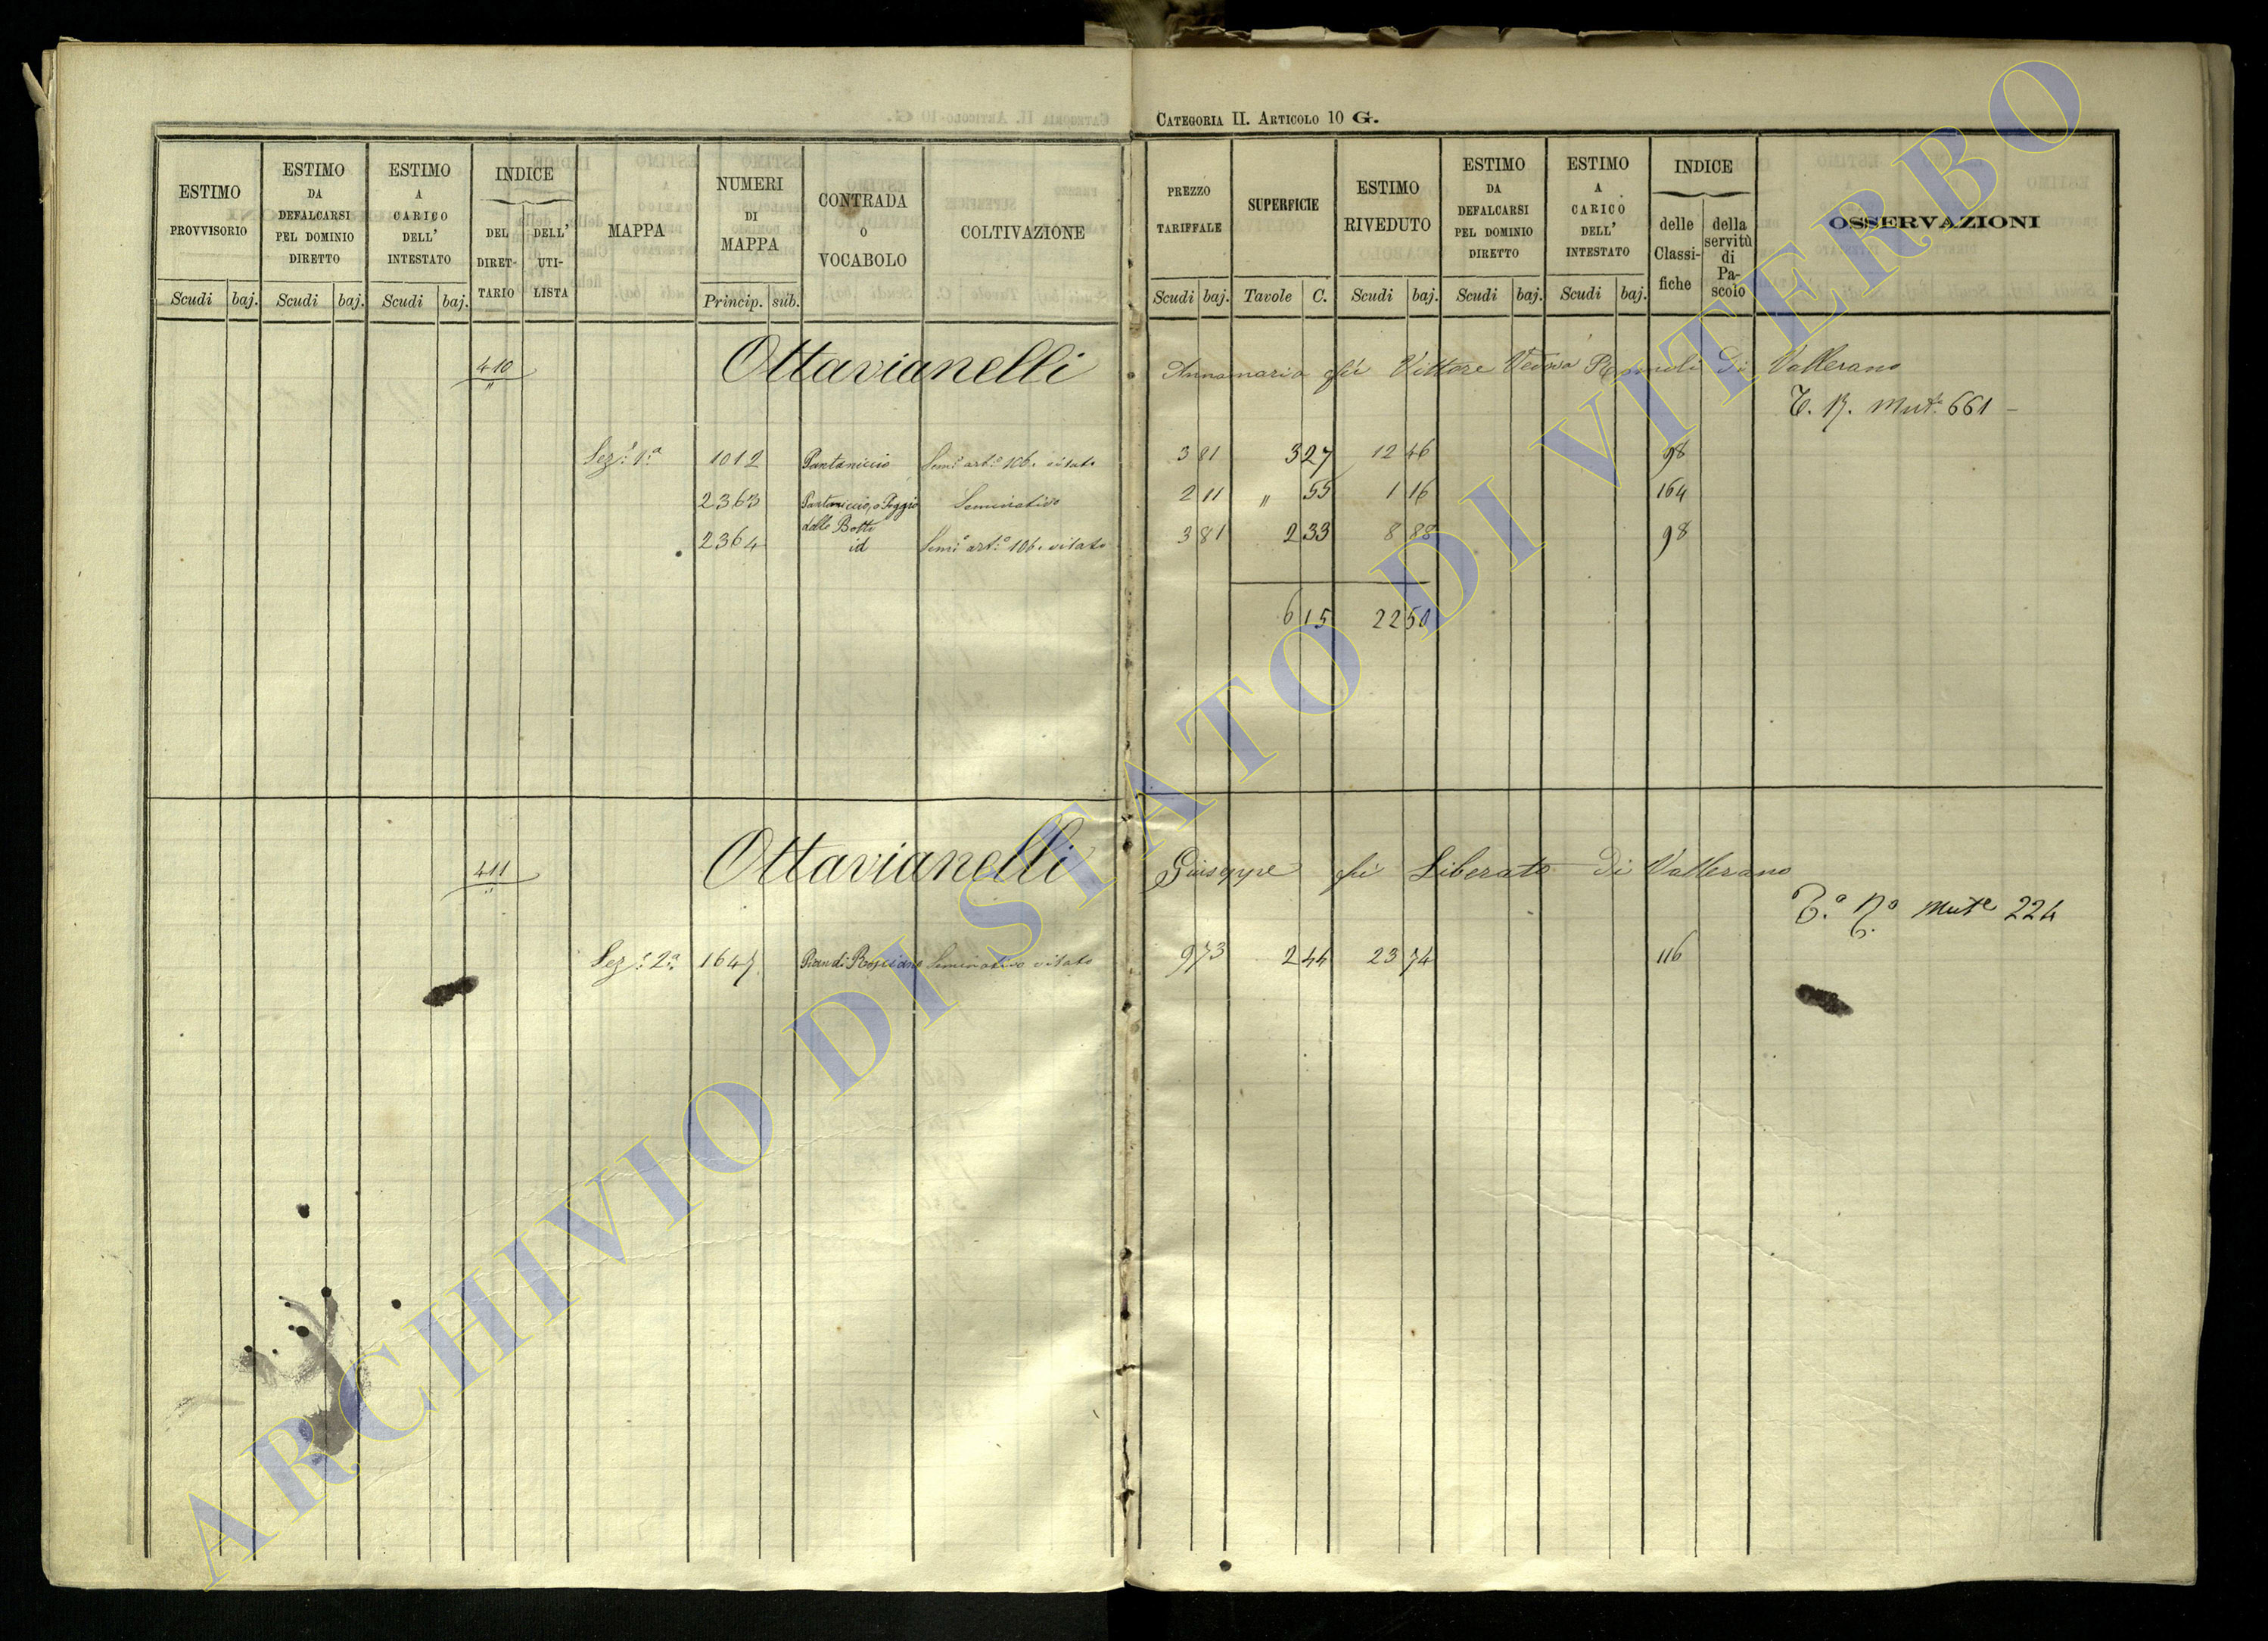 CATEGORIA II. ARTICOLO 10 G.
ESTIMO PROVVISORIO
Scudi baj.
ESTIMO DA DEFALCARSI PEL DOMINIO DIRETTO
Scudi baj.
ESTIMO A CARICO DELL' INTESTATO
Scudi baj.
INDICE
DEL DIRET-TARIO
DELL' UTI-LISTA
MAPPA
NUMERI DI MAPPA
Princip. sub.
CONTRADA O VOCABOLO
COLTIVAZIONE
PREZZO TARIFFALE
Scudi baj.
SUPERFICIE
Tavole C.
ESTIMO RIVEDUTO
Scudi baj.
ESTIMO DA DEFALCARSI PEL DOMINIO DIRETTO
Scudi baj.
ESTIMO A CARICO DELL' INTESTATO
Scudi baj.
INDICE
delle Classi-fiche
della servitù di Pa-scolo
OSSERVAZIONI
410 Ottavianelli Annamaria fù Vittore Vedova di Vallerano
" Mut. 661
Sez. 1.a 1012 Pantaniccio Sem.o art.o 106. vitato 3 81 3 27 12 46 98
2363 Pantaniccio, o Poggio delle Botti Seminativo 2 11 " 55 1 16 164
2364 id Sem.o art.o 106. vitato 3 81 2 33 8 88 98
6 15 22 50
411 Ottavianelli Giuseppe fù Liberato di Vallerano
" Mut.e 224
Sez. 2.a 1647 Pian di Seminativo vitato 9 73 2 44 23 74 116
ARCHIVIO DI STATO DI VITERBO